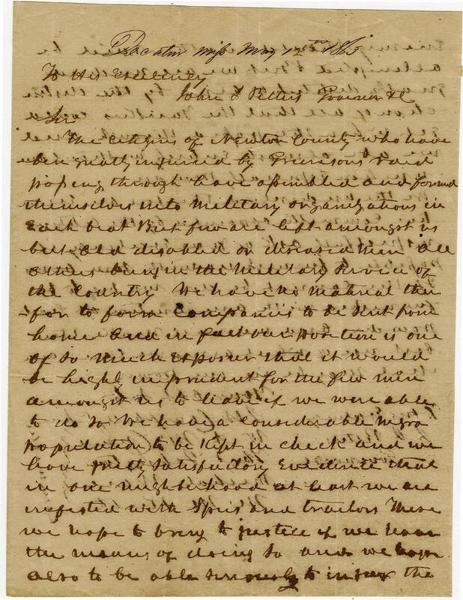 Decatur Miss May 12th 1863
To His Excellency
John J Pettus Governor &c
Sir
The citizens of Newton County who have
been greatly injured by Griersons raid
passing through have assembled and formed
themselves into Military organizations in
each beat But few are left amongst us
but old disabled or diseased men all
others being in the Military Service of
the Country We have no material there
for to form Companies to be sent from
home And in fact our position is one
of so much exposure that it would
be highly imprudent for the few men
amongst us to leave if we were able
to do so We have a considerable negro
population to be kept in check and we
have pretty satisfactory Evidence that
in one neighborhood at least we are
infested with Spies and traitors These
we hope to bring to justice if we have
the means of doing so and we hope
also to be able seriously to injure the